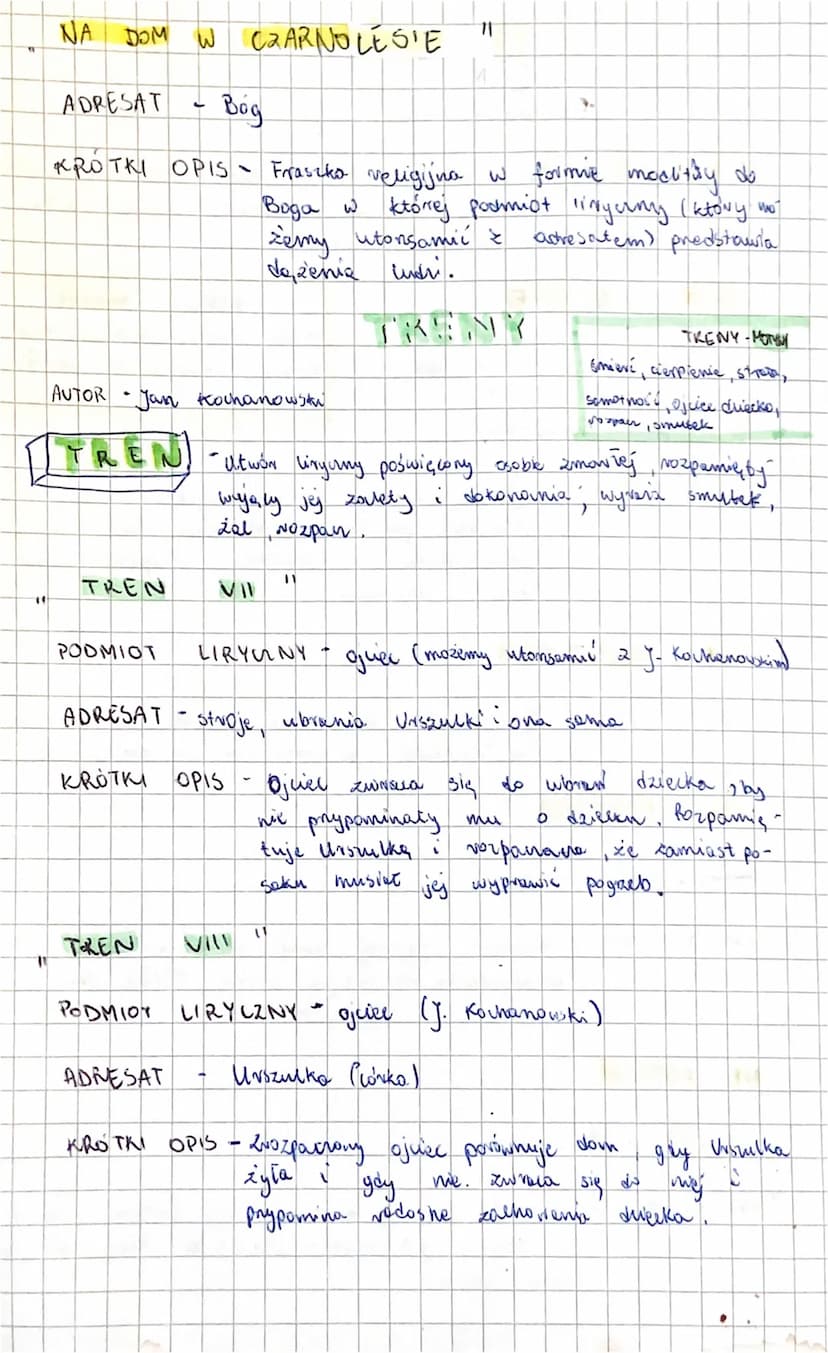 „NA DOM W CZARNOLESIE"
ADRESAT - Bóg
KRÓTKI OPIS - Fraszka religijna w formie modlitwy do
Boga w której podmiot liryczny (który mo-
żemy utożsamić z adresatem) predstawia
dążenia ludzi.
TRENY
TRENY - MOTYWY
śmierć, cierpienie, strata,
samotność, ojciec dziecko,
rozpacz, smutek
AUTOR - Jan Kochanowski
TREN - Utwór liryczny poświęcony osobie zmarłej, rozpamięty-
wujący jej zalety i dokonania, wyraża smutek,
żal, rozpacz.
„TREN VII"
PODMIOT LIRYCZNY - ojciec (możemy utożsamić z J. Kochanowskim)
ADRESAT - stroje, ubrania Urszulki i ona sama
KRÓTKI OPIS - Ojciec zwraca się do ubrań dziecka, by
nie przypominały mu o dziecku. Rozpamię-
tuje Urszulkę i rozpacza, że zamiast po-
sagu musiał jej wyprawić pogrzeb.
„TREN VIII"
PODMIOT LIRYCZNY - ojciec (J. Kochanowski)
ADRESAT - Urszulka (córka)
KRÓTKI OPIS - Zrozpaczony ojciec porównuje dom, gdy Urszulka
żyła i gdy nie. Zwraca się do niej i
przypomina radosne zachowania dziecka.